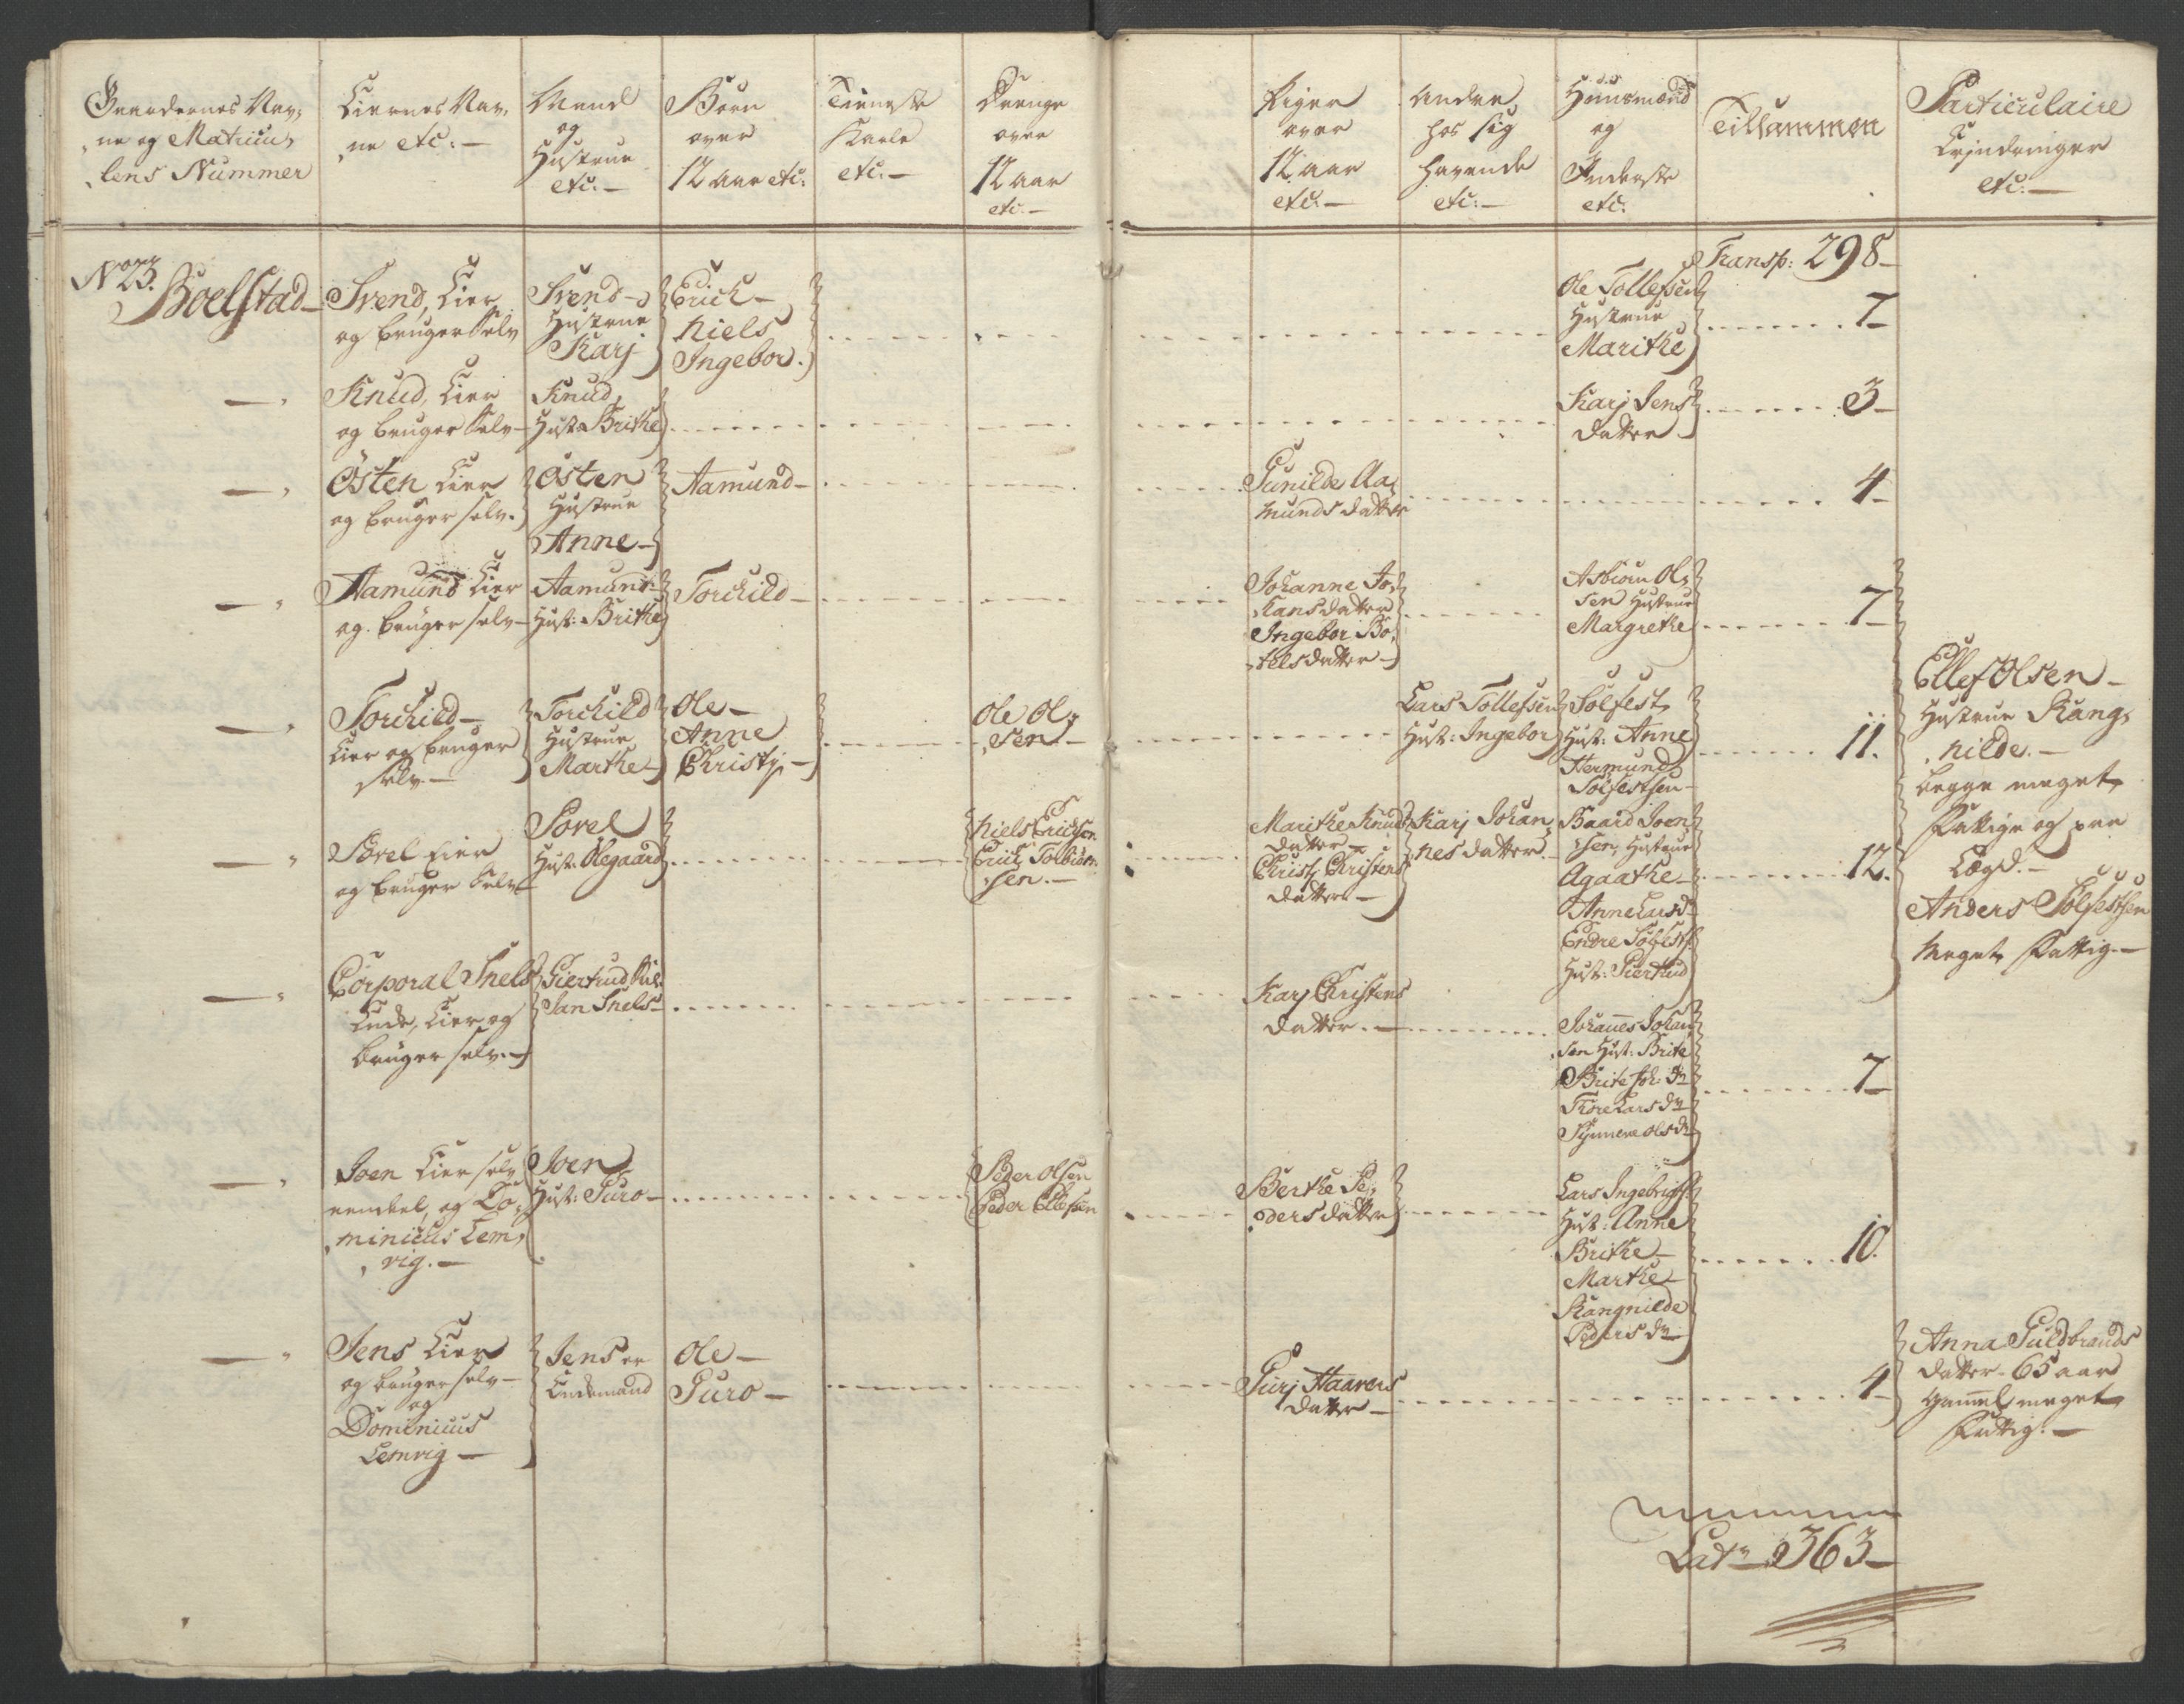 Gaardernes Nav,
ne og Matricu,
lens Nummer
Eiernes Nav,
ne etc: —
Mand
og
Hustrue
etc: —
Børn
over
12 aar etc:
Tieneste
Karle
etc: —
Drenge
over
12 aar
etc —
Piger
over
12 aar
etc: —
Andre
hos sig
havende
etc: —
Huusmænd
og
Inderste
etc:
Tillsammen
Particulaire
etc: —
Transp: 298 —
No 23.
Boelstad —
Svend, Eier
og bruger selv
Svend —
Hustrue
Karj
Erich —
Niels
Ingebor.
Ole Tollefsen
Hustrue
Marithe
7 —
Knud, Eier
og bruger selv —
Knud,
Hust: Brithe
Karj Jens
datter —
3 —
Östen Eier
og bruger selv.
Östen
Hustrue
Anne —
Aamund —
Gunilde Aa,
munds datter
4 —
Aamund Eier
og bruger selv —
Aamund
Hust: Brithe
Torchild —
Johanne Jo,
hans datter
Ingebor Bo,
tels datter —
Asbiörn Ol,
sen Hustrue
Margrethe
7 —
Torchild —
Eier og bruger
selv —
Torchild
Hustrue
Marthe —
Ole —
Anne
Christj —
Ole Ol,
sen —
Lars Tollefsen
Hust: Ingebor
Solfest,
Hust: Anne
Hermund
Solfestsen —
11.
Ellef Olsen —
Hustrue Rang,
nilde. —
begge meget
fattige og paa
Lægd. —
Anders Solfestsen
meget fattig. —
Sorel Eier
og bruger selv —
Sorel
Hust: Olegaard
Niels Erichsen
Erik Tolbiörn
sen. —
Marithe Knuds
datter —
Christj Christens
datter —
Karj Johan,
nes datter —
Baard Joen
sen, Hustrue
Agaathe —
Anne Larsdr
Endre Solfests:
Hust: Giertrud
12.
Corporal Snels
Enke, Eier og
bruger selv. —
Giertrud
San Snels —
Karj Christens
datter. —
Johanes Johan
sen Hust: Brite
Brite Joh: dr
Thore Lars dr
Synneve Ols dr
7 —
Joen Eier selv
eendeel, og Do,
minicus Lem,
vig. —
Joen
Hust: Guro —
Peder Olsen
Peder Ellefsen
Berthe Pe,
ders datter
Lars Ingebrigts:
Hust: Anne
Brithe —
Marthe —
Rangnilde
Peders dr
10.
Jens Eier
og bruger selv —
og
Dominicus
Lemvig —
Jens er
Enkemand
Ole —
Guro —
Gurj Haavers
datter —
4 —
Anna Guldbrands
datter. 65 aar
gamel, meget
fattig. —
Latr 363 —